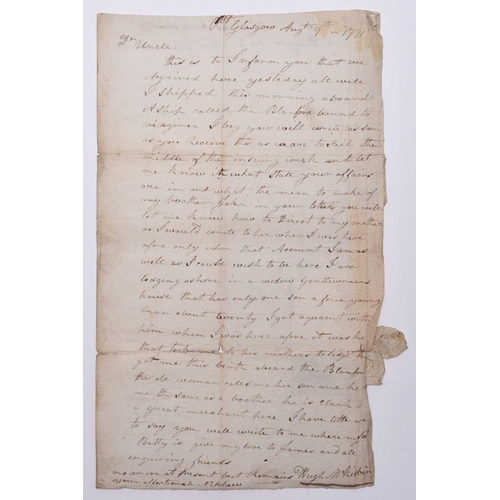 Glasgow Augt 9th 1771
Dr Uncle
this is to Inform you that we
Arrived here yesterday all well
I shipped this morning aboard
A ship called the Blanford bound to
virginea I beg you will write as soon
as you Receive this as we are to sail the
middle of the insuing week and let
me know what state your affairs
are in and what the mean to make of
my brother John in your letter you will
let me know how to direct to my mother
as I would wrote to her when I was here
afore only upon that Account I am as
well as I could wish to be here I am
lodging ashore in a widow Gentlewomans
house that has only one son a fine young
man about twenty I got aquent with
him when I was here afore it was he
that to his mothers to lodge
got me this birth aboard the Blanford
the old woman calls me her son and he
me the same as a brother he is clark to
a great merchant here I have little more
to say you will write to me where
Betty is give my love to James and all
enquiring friends
no more at Present but Remains Hugh
your affectionate